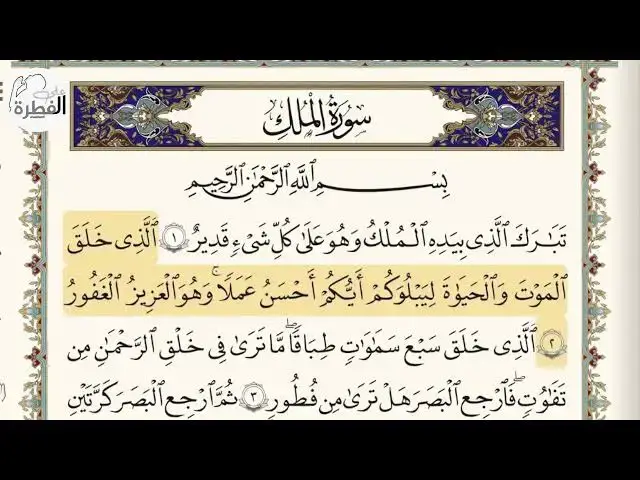 على
الفطرة
سُورَةُ الْمُلْكِ
بِسْمِ اللَّهِ الرَّحْمَٰنِ الرَّحِيمِ
تَبَارَكَ الَّذِي بِيَدِهِ الْمُلْكُ وَهُوَ عَلَىٰ كُلِّ شَيْءٍ قَدِيرٌ ١ الَّذِي خَلَقَ
الْمَوْتَ وَالْحَيَاةَ لِيَبْلُوَكُمْ أَيُّكُمْ أَحْسَنُ عَمَلًا ۚ وَهُوَ الْعَزِيزُ الْغَفُورُ
٢ الَّذِي خَلَقَ سَبْعَ سَمَاوَاتٍ طِبَاقًا ۖ مَّا تَرَىٰ فِي خَلْقِ الرَّحْمَٰنِ مِن
تَفَاوُتٍ ۖ فَارْجِعِ الْبَصَرَ هَلْ تَرَىٰ مِن فُطُورٍ ٣ ثُمَّ ارْجِعِ الْبَصَرَ كَرَّتَيْنِ